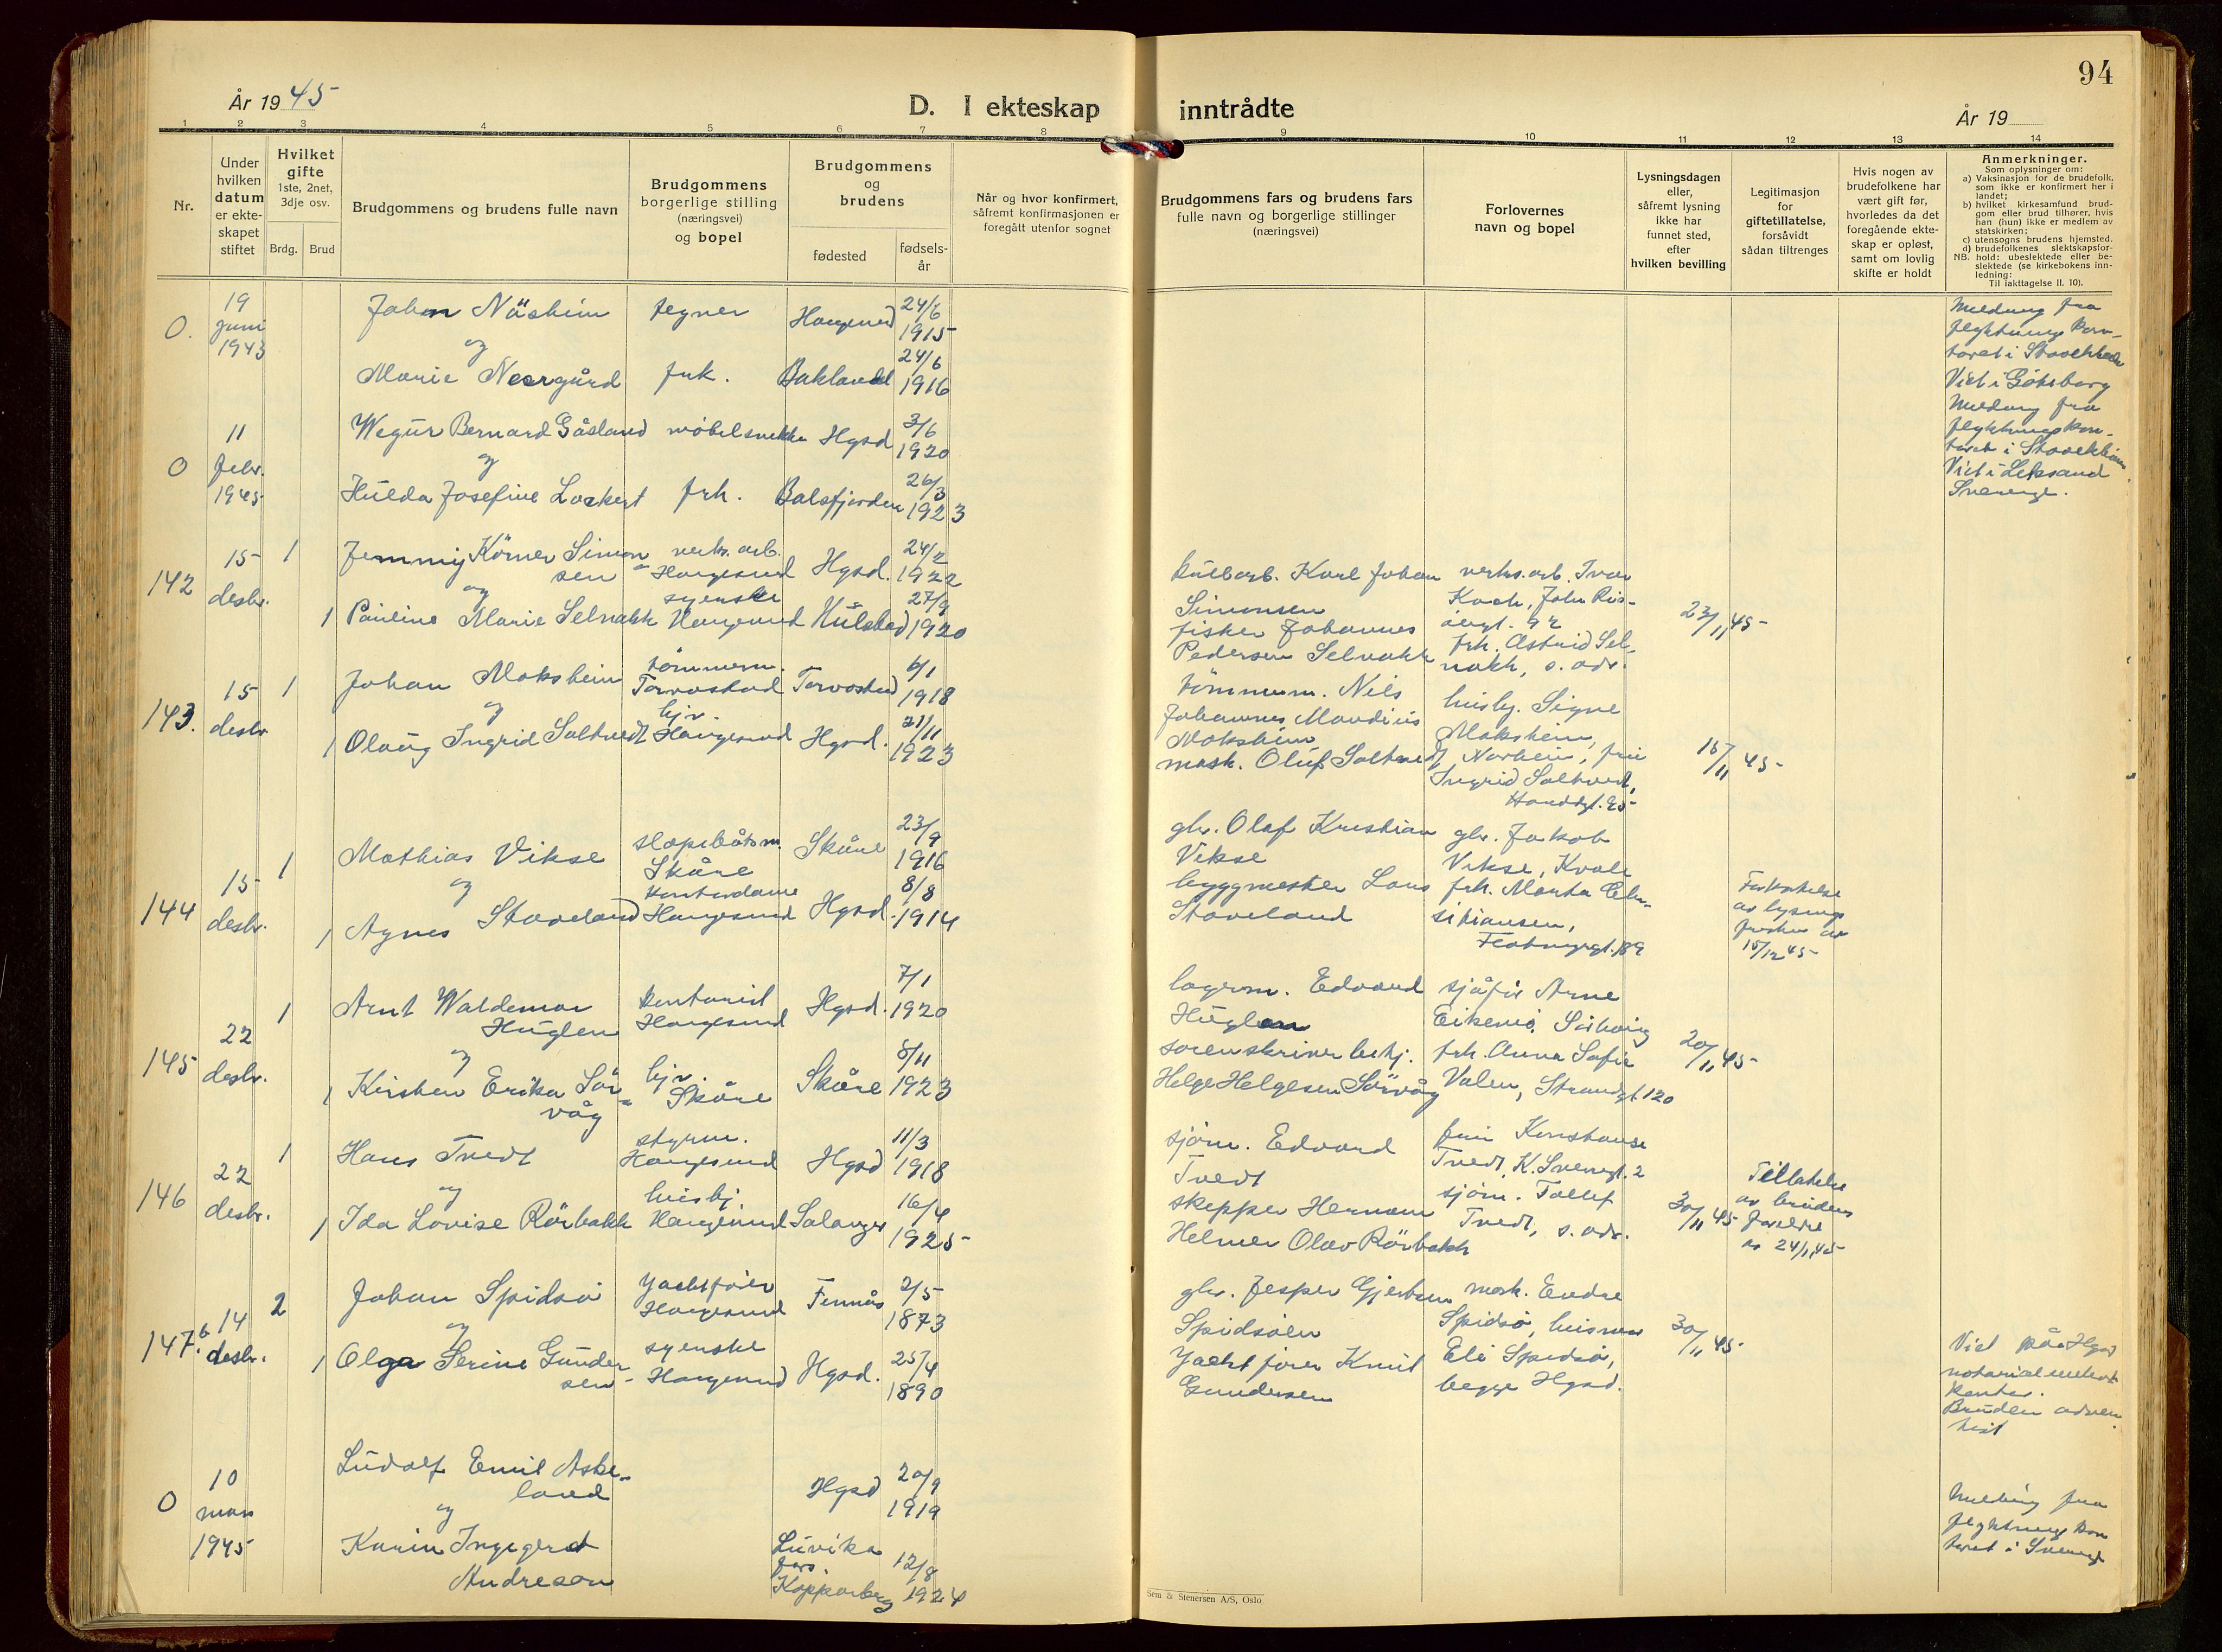 94
År 1945
D. I ekteskap inntrådte
År 19
1 2 3 4 5 6 7 8 9 10 11 12 13 14
Nr.
Under
hvilken
datum
er ekte-
skapet
stiftet
Hvilket
gifte
1ste, 2net,
3dje osv.
Brdg. Brud
Brudgommens og brudens fulle navn
Brudgommens
borgerlige stilling
(næringsvei)
og bopel
Brudgommens
og
brudens
fødested
fødsels-
år
Når og hvor konfirmert,
såfremt konfirmasjonen er
foregått utenfor sognet
Brudgommens fars og brudens fars
fulle navn og borgerlige stillinger
(næringsvei)
Forlovernes
navn og bopel
Lysningsdagen
eller,
såfremt lysning
ikke har
funnet sted,
efter
hvilken bevilling
Legitimasjon
for
giftetillatelse,
forsåvidt
sådan tiltrenges
Hvis nogen av
brudefolkene har
vært gift før,
hvorledes da det
foregående ekte-
skap er opløst,
samt om lovlig
skifte er holdt
Anmerkninger.
Som oplysninger om:
a) Vaksinasjon for de brudefolk,
som ikke er konfirmert her i
landet;
b) hvilket kirkesamfund brud-
gom eller brud tilhører, hvis
han (hun) ikke er medlem av
statskirken;
c) utensogns brudens hjemsted.
d) brudefolkenes slektskapsfor-
NB. hold: ubeslektede eller be-
slektede (se kirkebokens inn-
ledning:
Til iakttagelse II. 10).
0. 19 juni 1943
Johan Näsheim tegner 24/6 1915
og
Marie Neergård fnk. Baklandet 24/6 1916
Melding fra
flyktningskon-
toret i Stockholm
Viet i Göteborg
0 11 febr. 1945
Wegür Bernard Gåsland möbelsnekker Hgsd 3/6 1920
og
Hulda Josefine Lockert frk. Balsfjorden 26/3 1923
Melding fra
flyktningskon-
toret i Stockholm
Viet i Leksand
Sverige.
142 15 desbr. 1
Jemmy Körner Simon-
sen verks. arb. Haugesund Hgsd. 24/2 1922
og
1 Pauline Marie Selnakk syerske Haugesund 27/9 1920
Karl Johan
Simonsen
fisker Johannes
Pedersen Selnakk
verks. arb. Ivar
Koch,
frk. Astrid Sel-
nakk, s. adr.
23/11 45
143. 15 desbr 1
Johan Moksheim tömmerm. Torvastad Torvastad 6/1 1918
og
1 Olaug Ingrid Saltvedt hjv. Haugesund Hgsd. 21/11 1923
tömmerm. Nils
Johannes Mandius
Moksheim
mask. Oluf Saltvedt
husbj. Signe
Moksheim,
Norheim, fru
Ingrid Saltvedt,
15/11 45
144 15 desbr. 1
Mathias Vikse slepebåtsm. Skåre Skåre 23/9 1916
og
1 Agnes Staveland kontordame Haugesund Hgsd. 8/8 1914
gbr. Olaf Kristian
Vikse
byggmester Lars
Staveland
gbr. Jakob
Vikse, Kvale
frk. Marta Chri-
stiansen,
15/12 45
145 22 desbr. 1
Arnt Waldemar
Huglen kontorist Haugesund Hgsd. 7/1 1920
og
1 Kirsten Erika Sör-
våg hjv. Skåre Skåre 8/11 1923
lagerm. Edvard
Huglen
sorenskriver betj.
Helge Helgesen Sörvåg
sjåför Arne
frk. Anna Sofie
Valen, Strandgt. 120
20/11 45
146 22 desbr. 1
Hans Tvedt styrm. Haugesund Hgsd 11/3 1918
og
1 Ida Lovise Rörbakk husbj. Haugesund Salangen 16/4 1925
sjöm. Edvard
Tvedt
skipper Herman
Helmer Olav Rörbakk
fru Konstanse
Tvedt, K. Sverresgt. 2
sjöm. Tollef
Tvedt, s. adr.
30/11 45
Tillatelse
av brudens
foreldre
147. 14 desbr. 2
Johan Spidsö Yachtförer Haugesund Finnås 2/5 1873
og
1 Olga Serine Gunder-
sen syerske Haugesund Hgsd. 25/4 1890
gbr. Jesper Gjertsen
Spidsöen
Yachtförer Knut
Gundersen
mask. Endre
Spidsö, husmor
Eli Spidsö,
begge Hgsd.
30/11 45
Viet på Hgsd
notarialembets
kontor.
Bruden adven-
tist
0 10 mars 1945
Ludolf Emil Aske-
land Hgsd 20/9 1919
og
Karin Ingegerd
Andreson
Luvika
fors
Kopparberg 12/8 1924
Melding fra
flyktningskon
toret i Sverige
Sem & Stenersen A/S, Oslo.